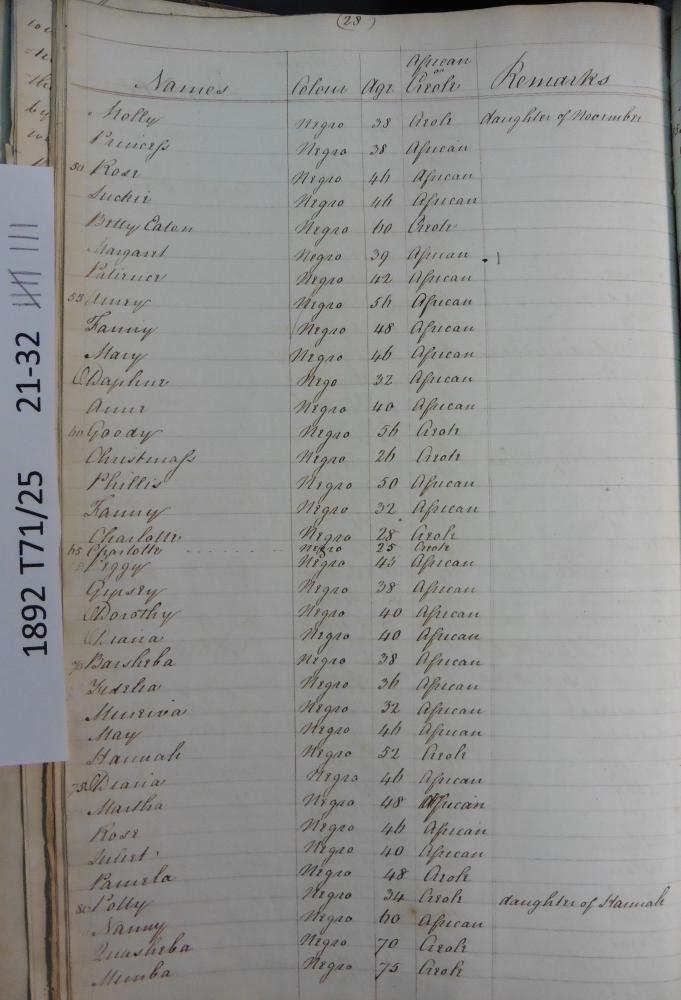 (28)
Names Colour Age African or Creole Remarks
Molly Negro 38 Creole daughter of Noormber
Princess Negro 38 African
50 Rose Negro 46 African
Suckie Negro 46 African
Betty Eaton Negro 60 Creole
Margaret Negro 39 African
Patience Negro 42 African
55 Amey Negro 56 African
Fanny Negro 48 African
Mary Negro 46 African
Daphne Nego 32 African
Anne Negro 40 African
60 Goody Negro 56 Creole
Christmass Negro 26 Creole
Phillis Negro 50 African
Fanny Negro 32 African
Charlotte Negro 28 Creole
65 Charlotte Negro 25 Creole
Peggy Negro 43 African
Gipsey Negro 38 African
Dorothy Negro 40 African
Diana Negro 40 African
70 Barsheba Negro 38 African
Fidelia Negro 36 African
Minerva Negro 32 African
May Negro 46 African
Hannah Negro 52 Creole
75 Diana Negro 46 African
Martha Negro 48 African
Rose Negro 46 African
Juliet Negro 40 African
Pamela Negro 48 Creole
80 Polly Negro 34 Creole daughter of Hannah
Nanny Negro 60 African
Quasheba Negro 70 Creole
Mimba Negro 75 Creole
1892 T71/25 21-32